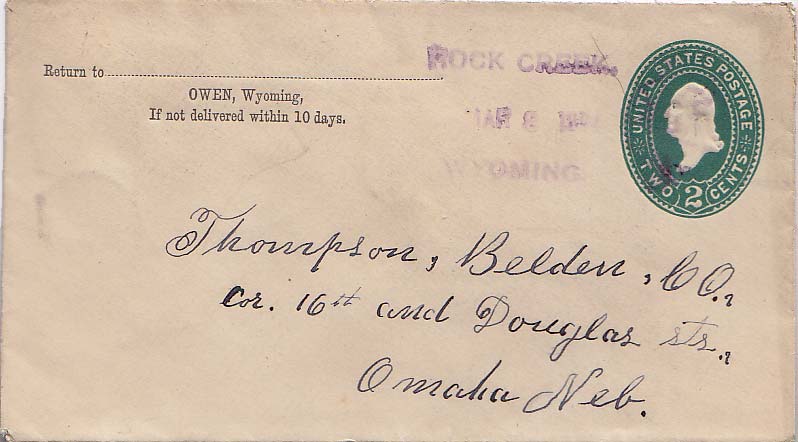 Return to
OWEN, Wyoming,
If not delivered within 10 days.
ROCK CREEK,
8
WYOMING
UNITED STATES POSTAGE
TWO 2 CENTS
Thompson, Belden, CO.,
Cor. 16th and Douglas sts.,
Omaha Neb.